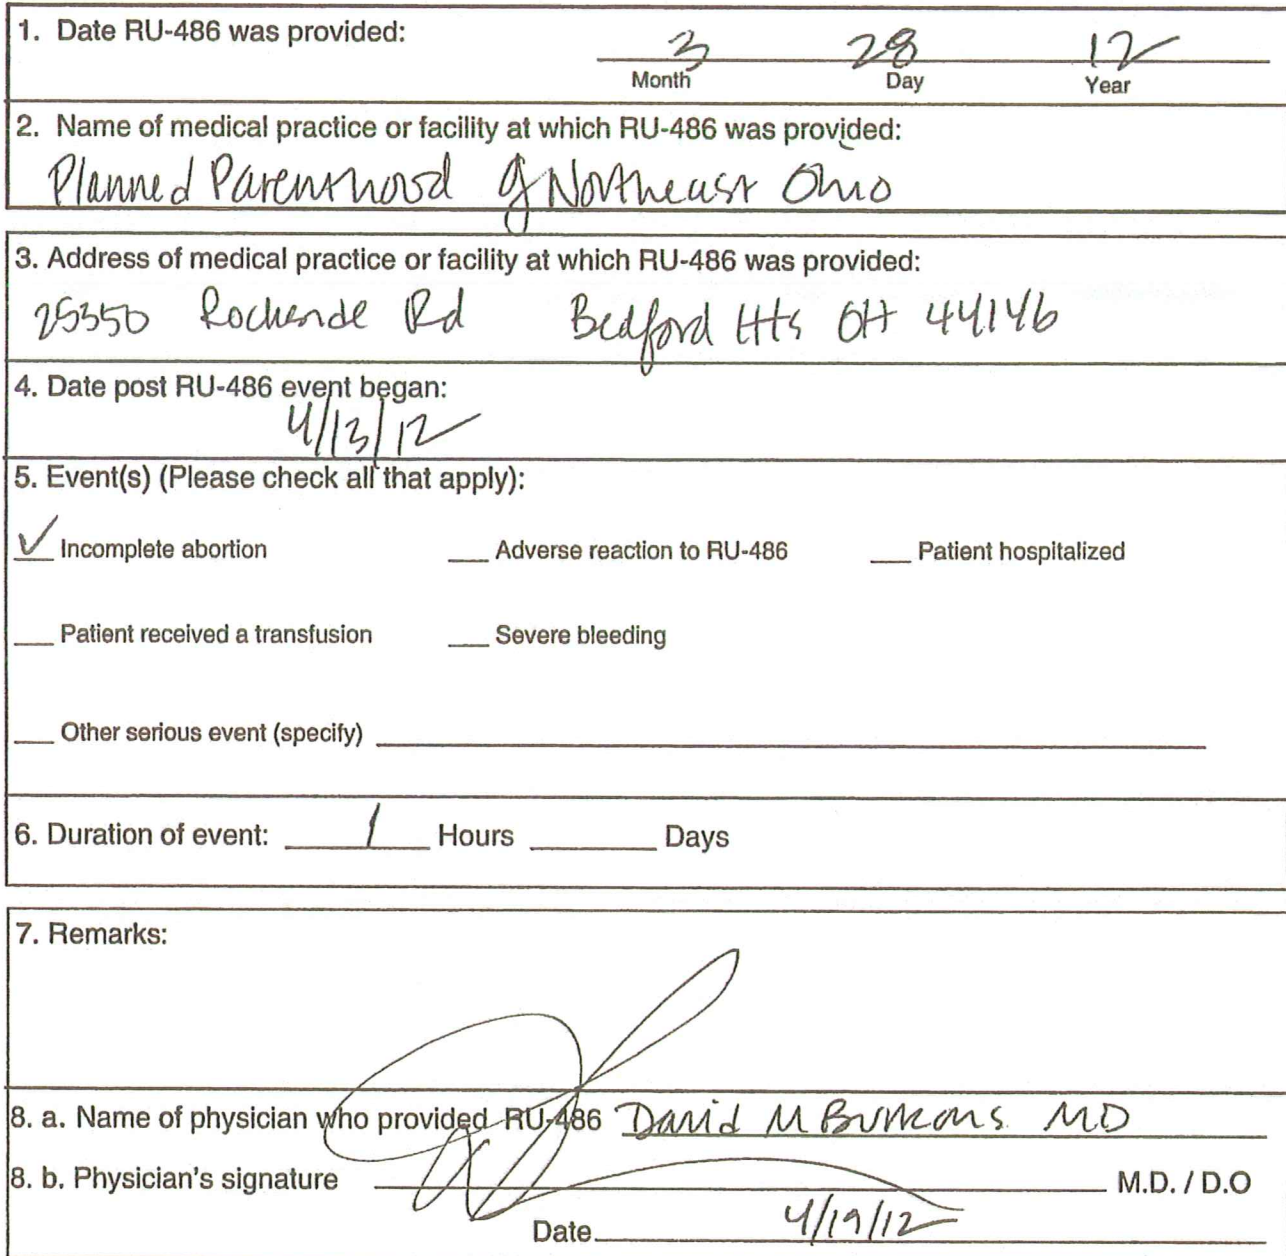 1. Date RU-486 was provided:
3 28 12
Month Day Year
2. Name of medical practice or facility at which RU-486 was provided:
Planned Parenthood of Northeast Ohio
3. Address of medical practice or facility at which RU-486 was provided:
25350 Rd Bedford Hts OH 44146
4. Date post RU-486 event began:
4/13/12
5. Event(s) (Please check all that apply):
✓ Incomplete abortion ___ Adverse reaction to RU-486 ___ Patient hospitalized
___ Patient received a transfusion ___ Severe bleeding
___ Other serious event (specify) ___
6. Duration of event: 1 Hours ___ Days
7. Remarks:
8. a. Name of physician who provided RU-486 David M Burkons MD
8. b. Physician's signature ___ M.D. / D.O
Date 4/19/12